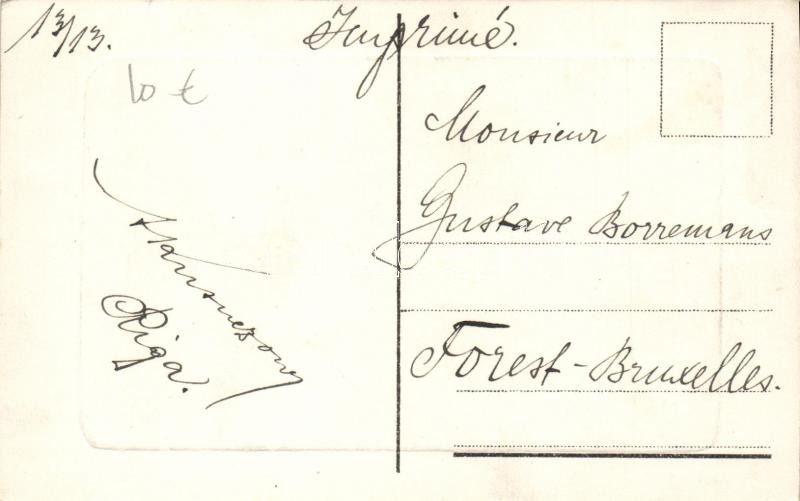 13/13.
Imprimé.
10 €
Monsieur
Gustave Borremans
Forest-Bruxelles.
Riga.